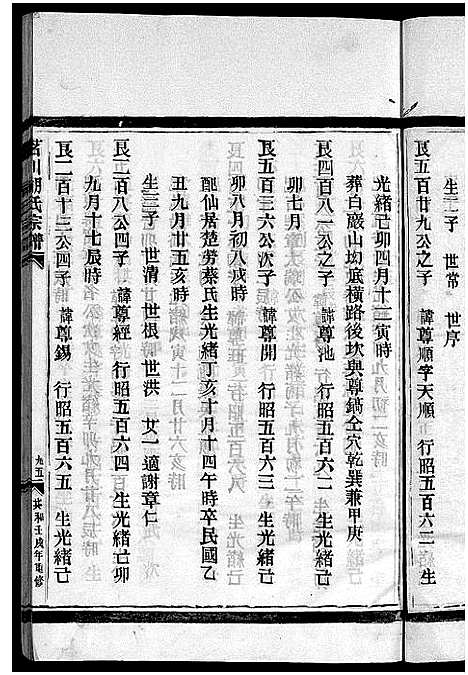 生二子 世常 世序
艮五百廿九公之子 諱尊順字天順 行昭五百六二 生
光緒己卯四月十二寅時
葬白巖山坳底橫路後坎與尊鎬仝穴乾巽兼甲庚
艮四百八一公之子 諱尊池 行昭五百六二 生光緒己
卯七月
艮五百三六公次子 諱尊開 行昭五百六三 生光緒己
卯八月初八戌時
配仙居楚勞蔡氏生光緒丁亥十月十四午時卒民國乙
丑九月廿五亥時
生三子 世清 世根 世洪 女一適謝章仁
艮二百八公四子 諱尊經 行昭五百六四 生光緒己卯
九月十七辰時
艮二百十三公四子 諱尊錫 行昭五百六五 生光緒己
茗川胡氏宗譜
九五
共和壬戌年重修